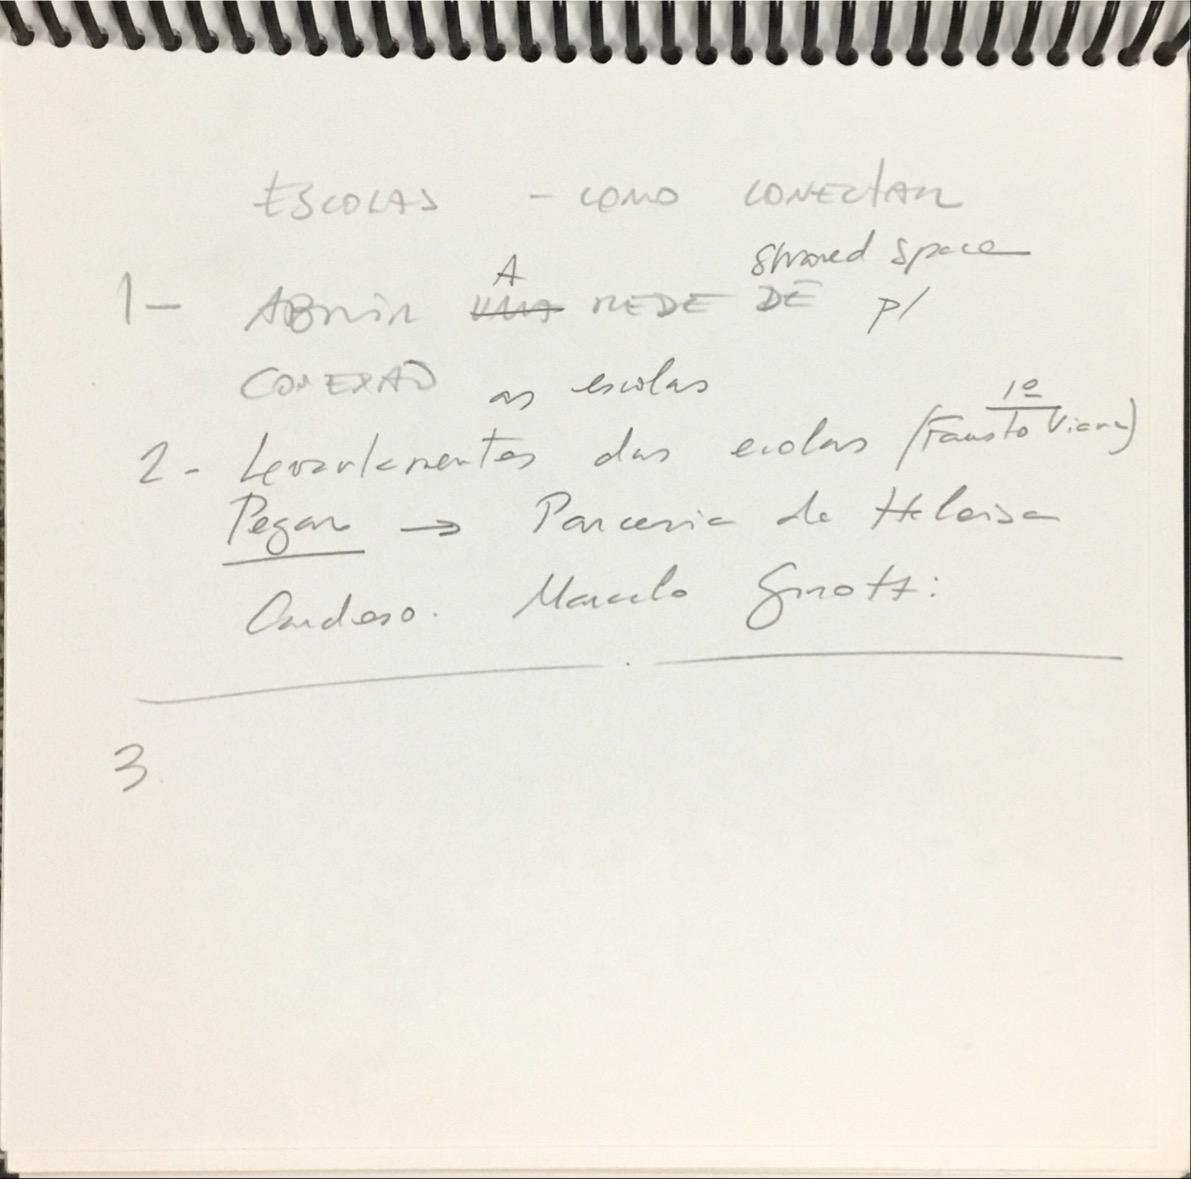 ESCOLAS - COMO CONECTAR
A shared space
1- ABRIR UMA REDE DE p/
CONEXÃO as escolas
1º
2- Levantamentos das escolas (Fausto Viana)
Pegar → Parceria de Heloisa
Cardoso. Marcelo
3